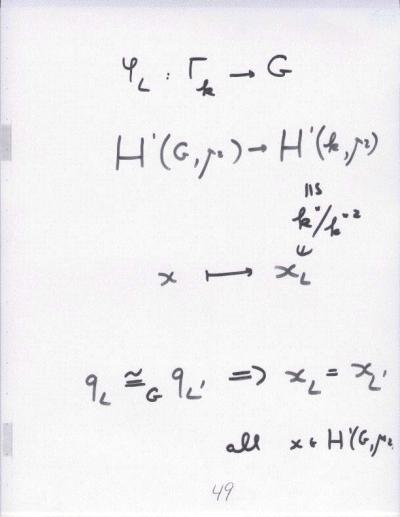 φ_L : Γ_k → G
H¹(G, μ₂) → H¹(k, μ₂)
≅
k˙/k˙²
∪
x ↦ x_L
q_L ≅_G q_L' ⇒ x_L = x_L'
all x ∈ H¹(G, μ₂
49